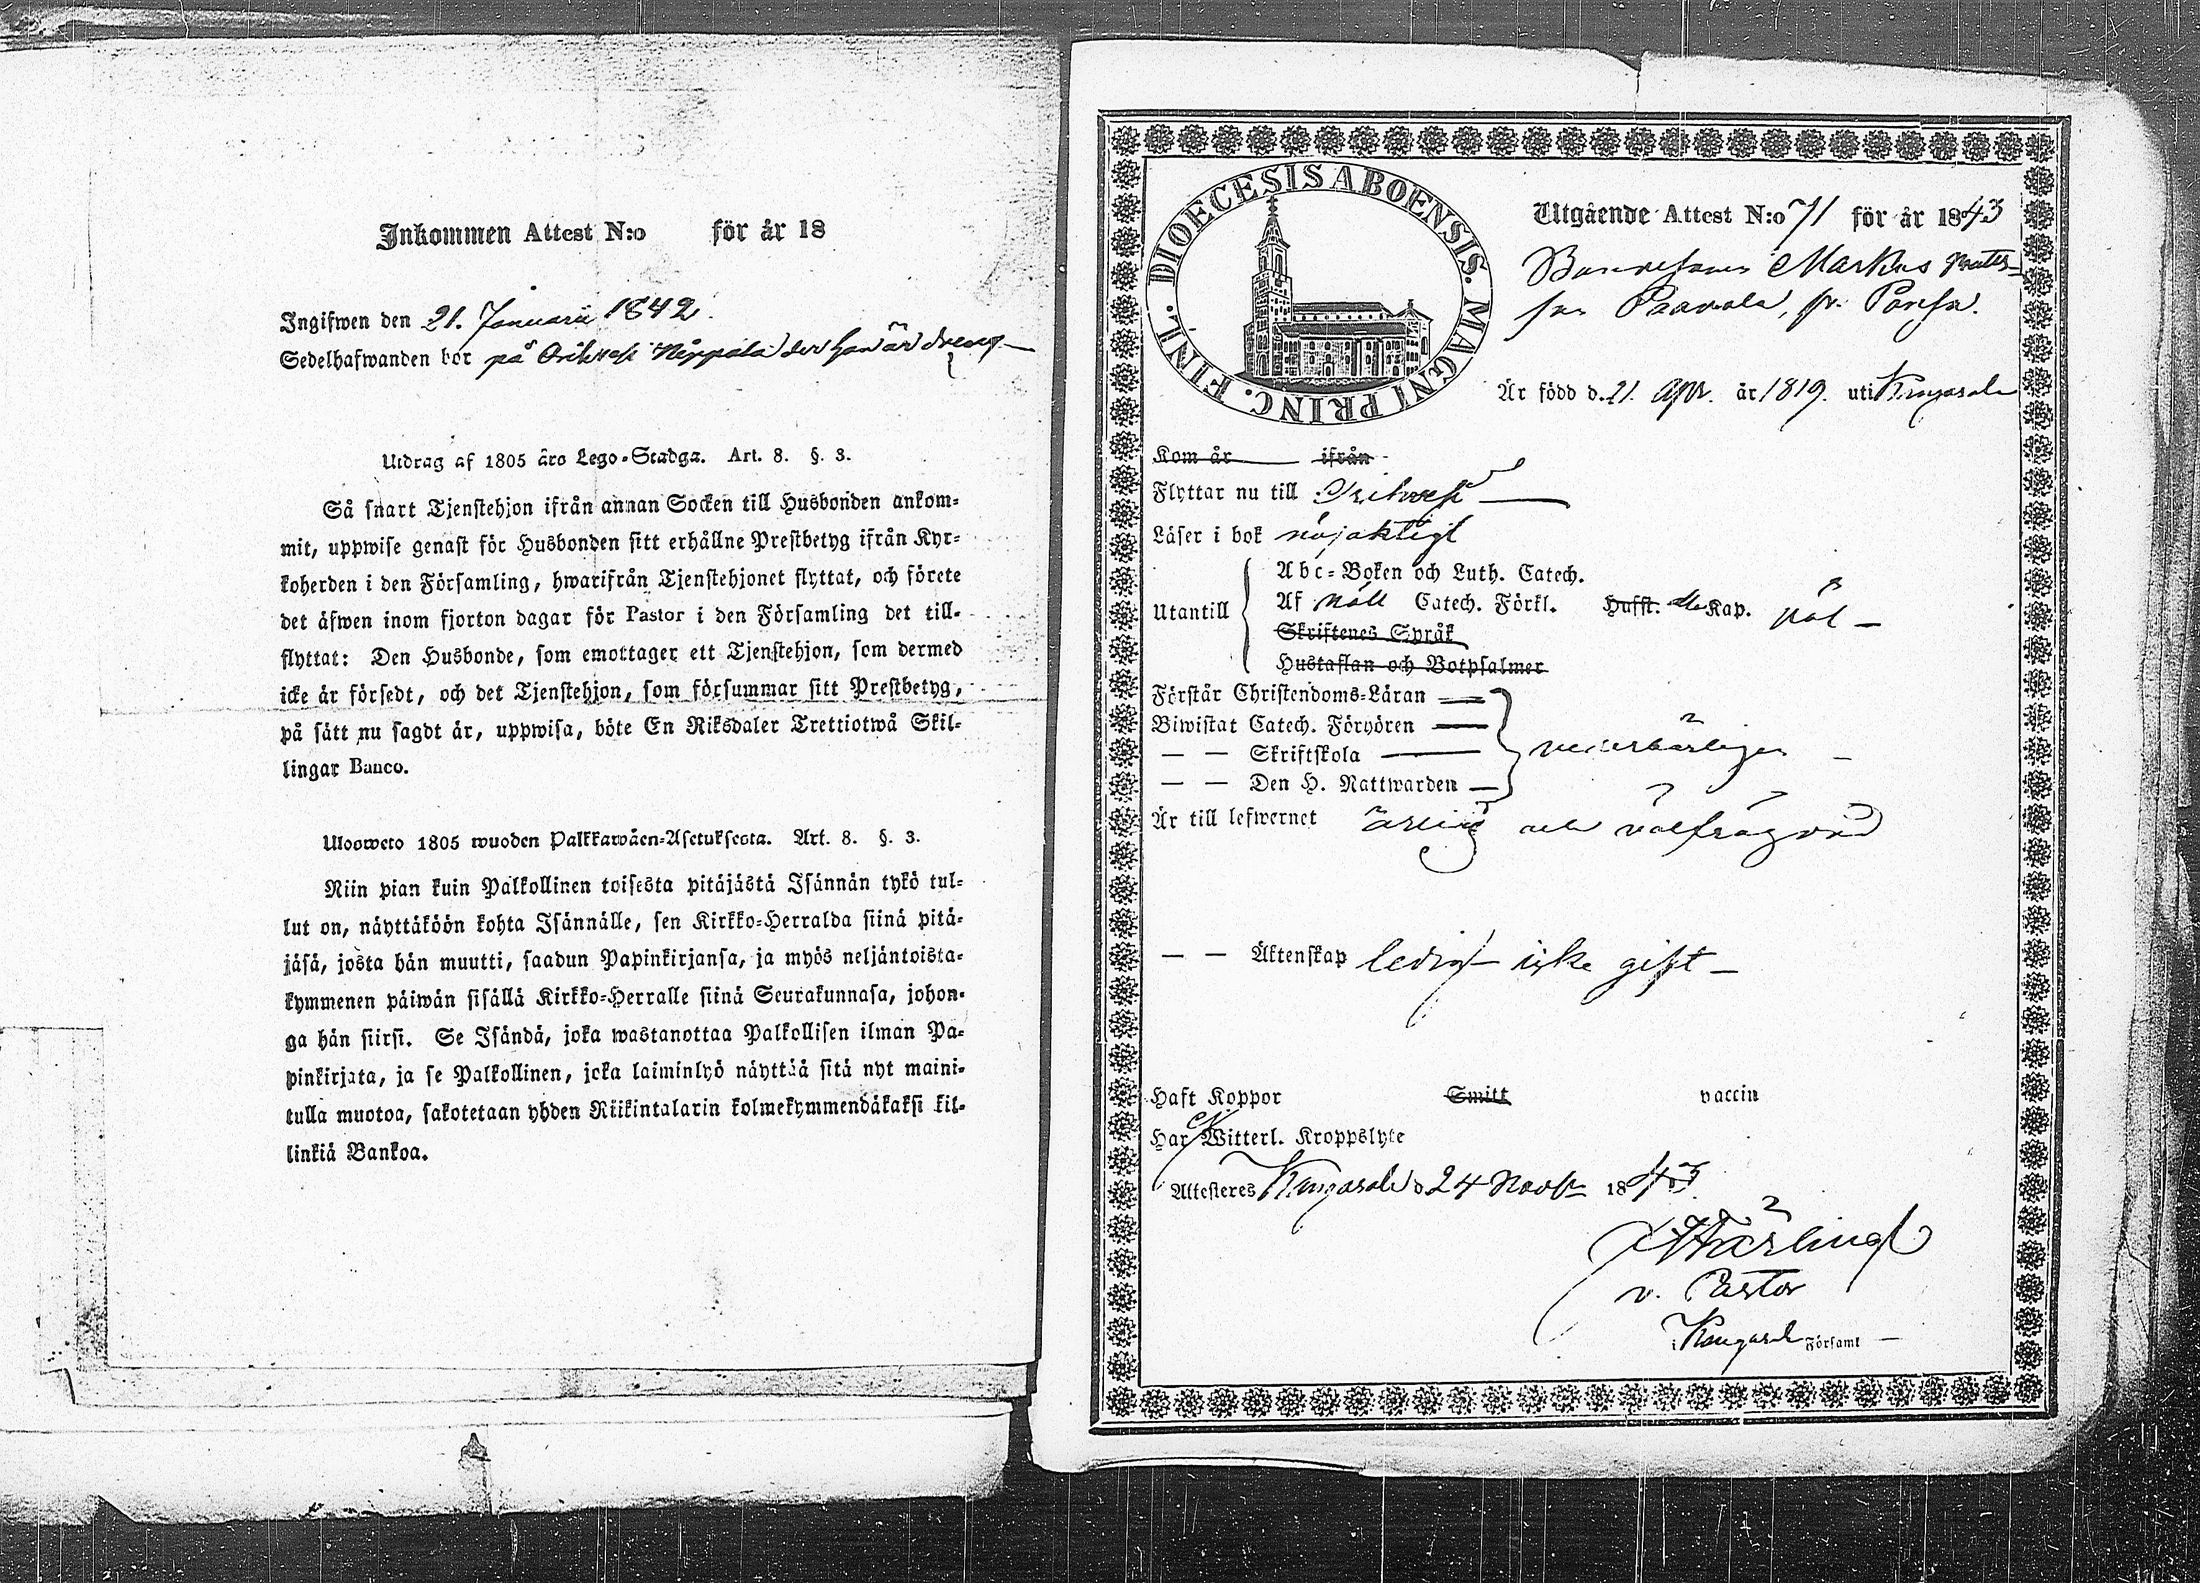 Inkommen Attest N:o för år 18
Ingifwen den 21. Januarii 1842.
Sedelhafwanden bor på Orihvesi der han är dreng
Utdrag af 1805 års Lego-Stadga. Art. 8. §. 3.
Så snart Tjenstehjon ifrån annan Socken till Husbonden ankom-
mit, uppwise genast för Husbonden sitt erhållne Prestbetyg ifrån Kyr-
koherden i den Församling, hwarifrån Tjenstehjonet flyttat, och förete
det äfwen inom fjorton dagar för Pastor i den Församling det till-
flyttat: Den Husbonde, som emottager ett Tjenstehjon, som dermed
icke är försedt, och det Tjenstehjon, som försummar sitt Prestbetyg,
på sätt nu sagdt är, uppwisa, böte En Riksdaler Trettiotwå Skil-
lingar Banco.
Ulosweto 1805 wuoden Palkkawäen-Asetuksesta. Art. 8. §. 3.
Niin pian kuin Palkollinen toisesta pitäjästä Isännän tykö tul-
lut on, näyttäköön kohta Isännälle, sen Kirkko-Herralda siinä pitä-
jäsä, josta hän muutti, saadun Papinkirjansa, ja myös neljäntoista-
kymmenen päiwän sisällä Kirkko-Herralle siinä Seurakunnasa, johon-
ga hän siirsi. Se Isändä, joka wastanottaa Palkollisen ilman Pa-
pinkirjata, ja se Palkollinen, joka laiminlyö näyttää sitä nyt maini-
tulla muotoa, sakotetaan yhden Riikintalarin kolmekymmendäkaksi kil-
linkiä Bankoa.
DIOECESIS ABOENSIS. MAGNI PRINC. FINL.
Utgående Attest N:o 71 för år 1843
Bondesonen Markus Matts-
son Paavola, fr.
Är född d. 21. Apr. år 1819. uti Kangasala
Kom år ifrån
Flyttar nu till Orihvesi
Läser i bok nöjaktigt
Utantill
Abc-Boken och Luth. Catech.
Af Nöll Catech. Förkl. Hufst. alla Kap. väl
Skriftenes Språk
Hustaflan och Botpsalmer
Förstår Christendoms-Läran
Biwistat Catech. Förhören
— — Skriftskola vederbörligen
— — Den H. Nattwarden
Är till lefwernet ärlig och välfrägdad
— — Äktenskap ledig icke gift
Haft Koppor Smitt vaccin
Har ej Witterl. Kroppslyte
Attesteres Kangasala d 24 Novbr 1843
v. Pastor
i Kangasala Församl